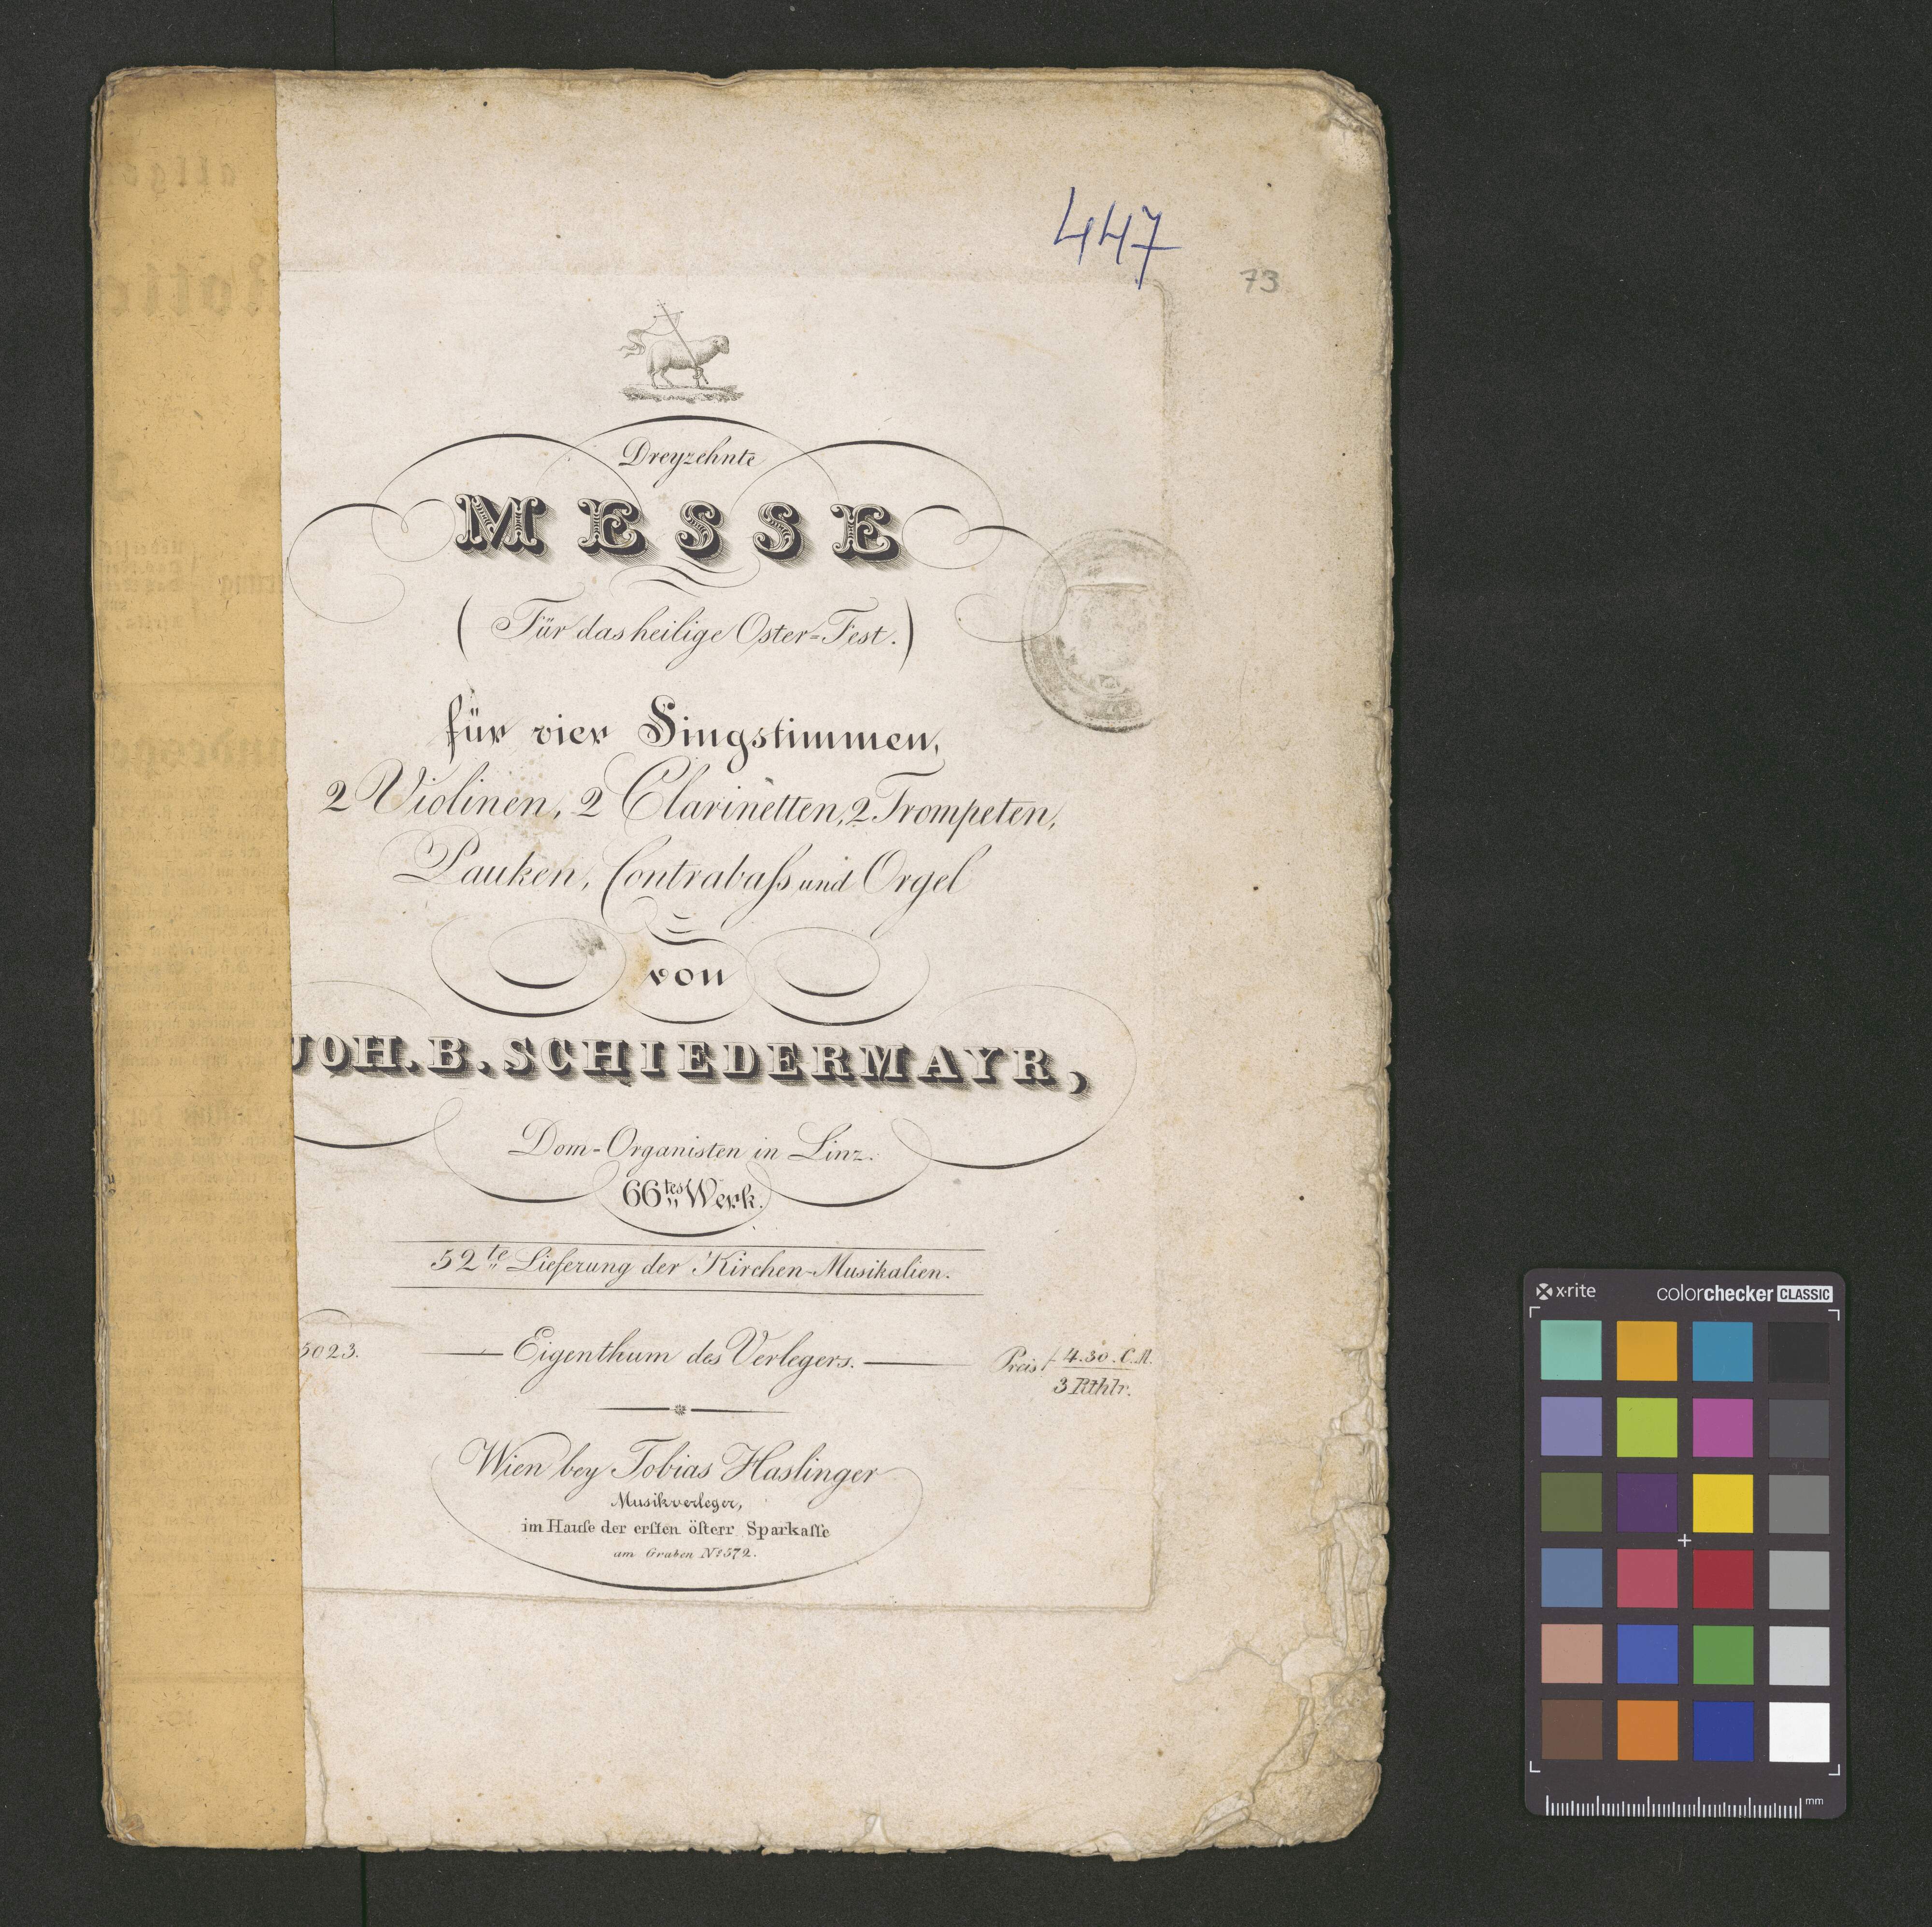 447
73
Dreyzehnte
MESSE
(Für das heilige Oster=Fest.)
für vier Singstimmen,
2 Violinen, 2 Clarinetten, 2 Trompeten,
Pauken, Contrabaſs und Orgel
von
JOH. B. SCHIEDERMAYR,
Dom-Organisten in Linz.
66tes Werk.
52te Lieferung der Kirchen-Musikalien.
5023.
Eigenthum des Verlegers.
Preis f 4.30. C.M.
3 Rthlr.
Wien bey Tobias Haslinger
Musikverleger,
im Hauſe der erſten öſterr Sparkaſſe
am Graben No 572.
x·rite
colorchecker CLASSIC
mm